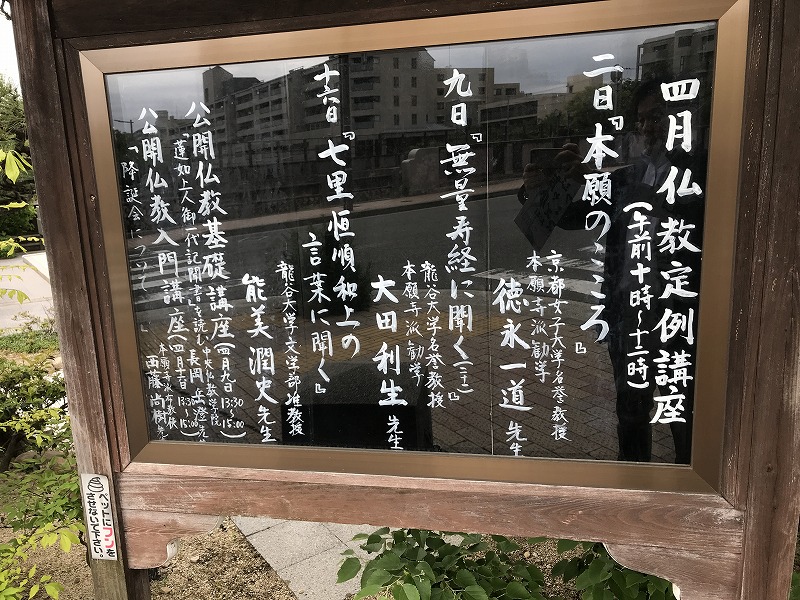 四月仏教定例講座
(午前十時〜十二時)
二日『本願のこころ』
京都女子大学名誉教授
本願寺派勧学
徳永一道 先生
九日『無量寿経に聞く
龍谷大学名誉教授
本願寺派勧学
大田利生 先生
十六日『七里恒順和上の
言葉に聞く』
龍谷大学文学部准教授
能美潤史先生
公開仏教基礎講座
13:30〜15:00
「蓮如上人御一代記聞書」を読む
公開仏教入門講座
13:30〜15:00
「降誕会について」
ペットにフンを
させないで下さい。